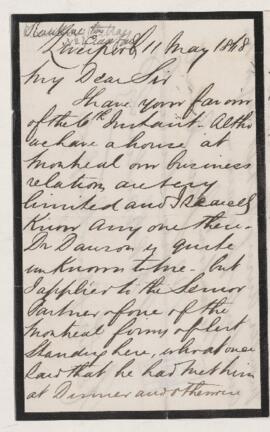 Liverpool 11 May 1868
My Dear Sir
I have your favour
of the 6th Instant. Altho
we have a house at
Montreal our business
relations are very
limited and I scarcely
know any one there.
Dr Dawson is quite
unknown to me - but
I applied to the Senior
Partner of one of the
Montreal firms of best
standing here, who at once
said that he had met him
at Dinner and otherwise